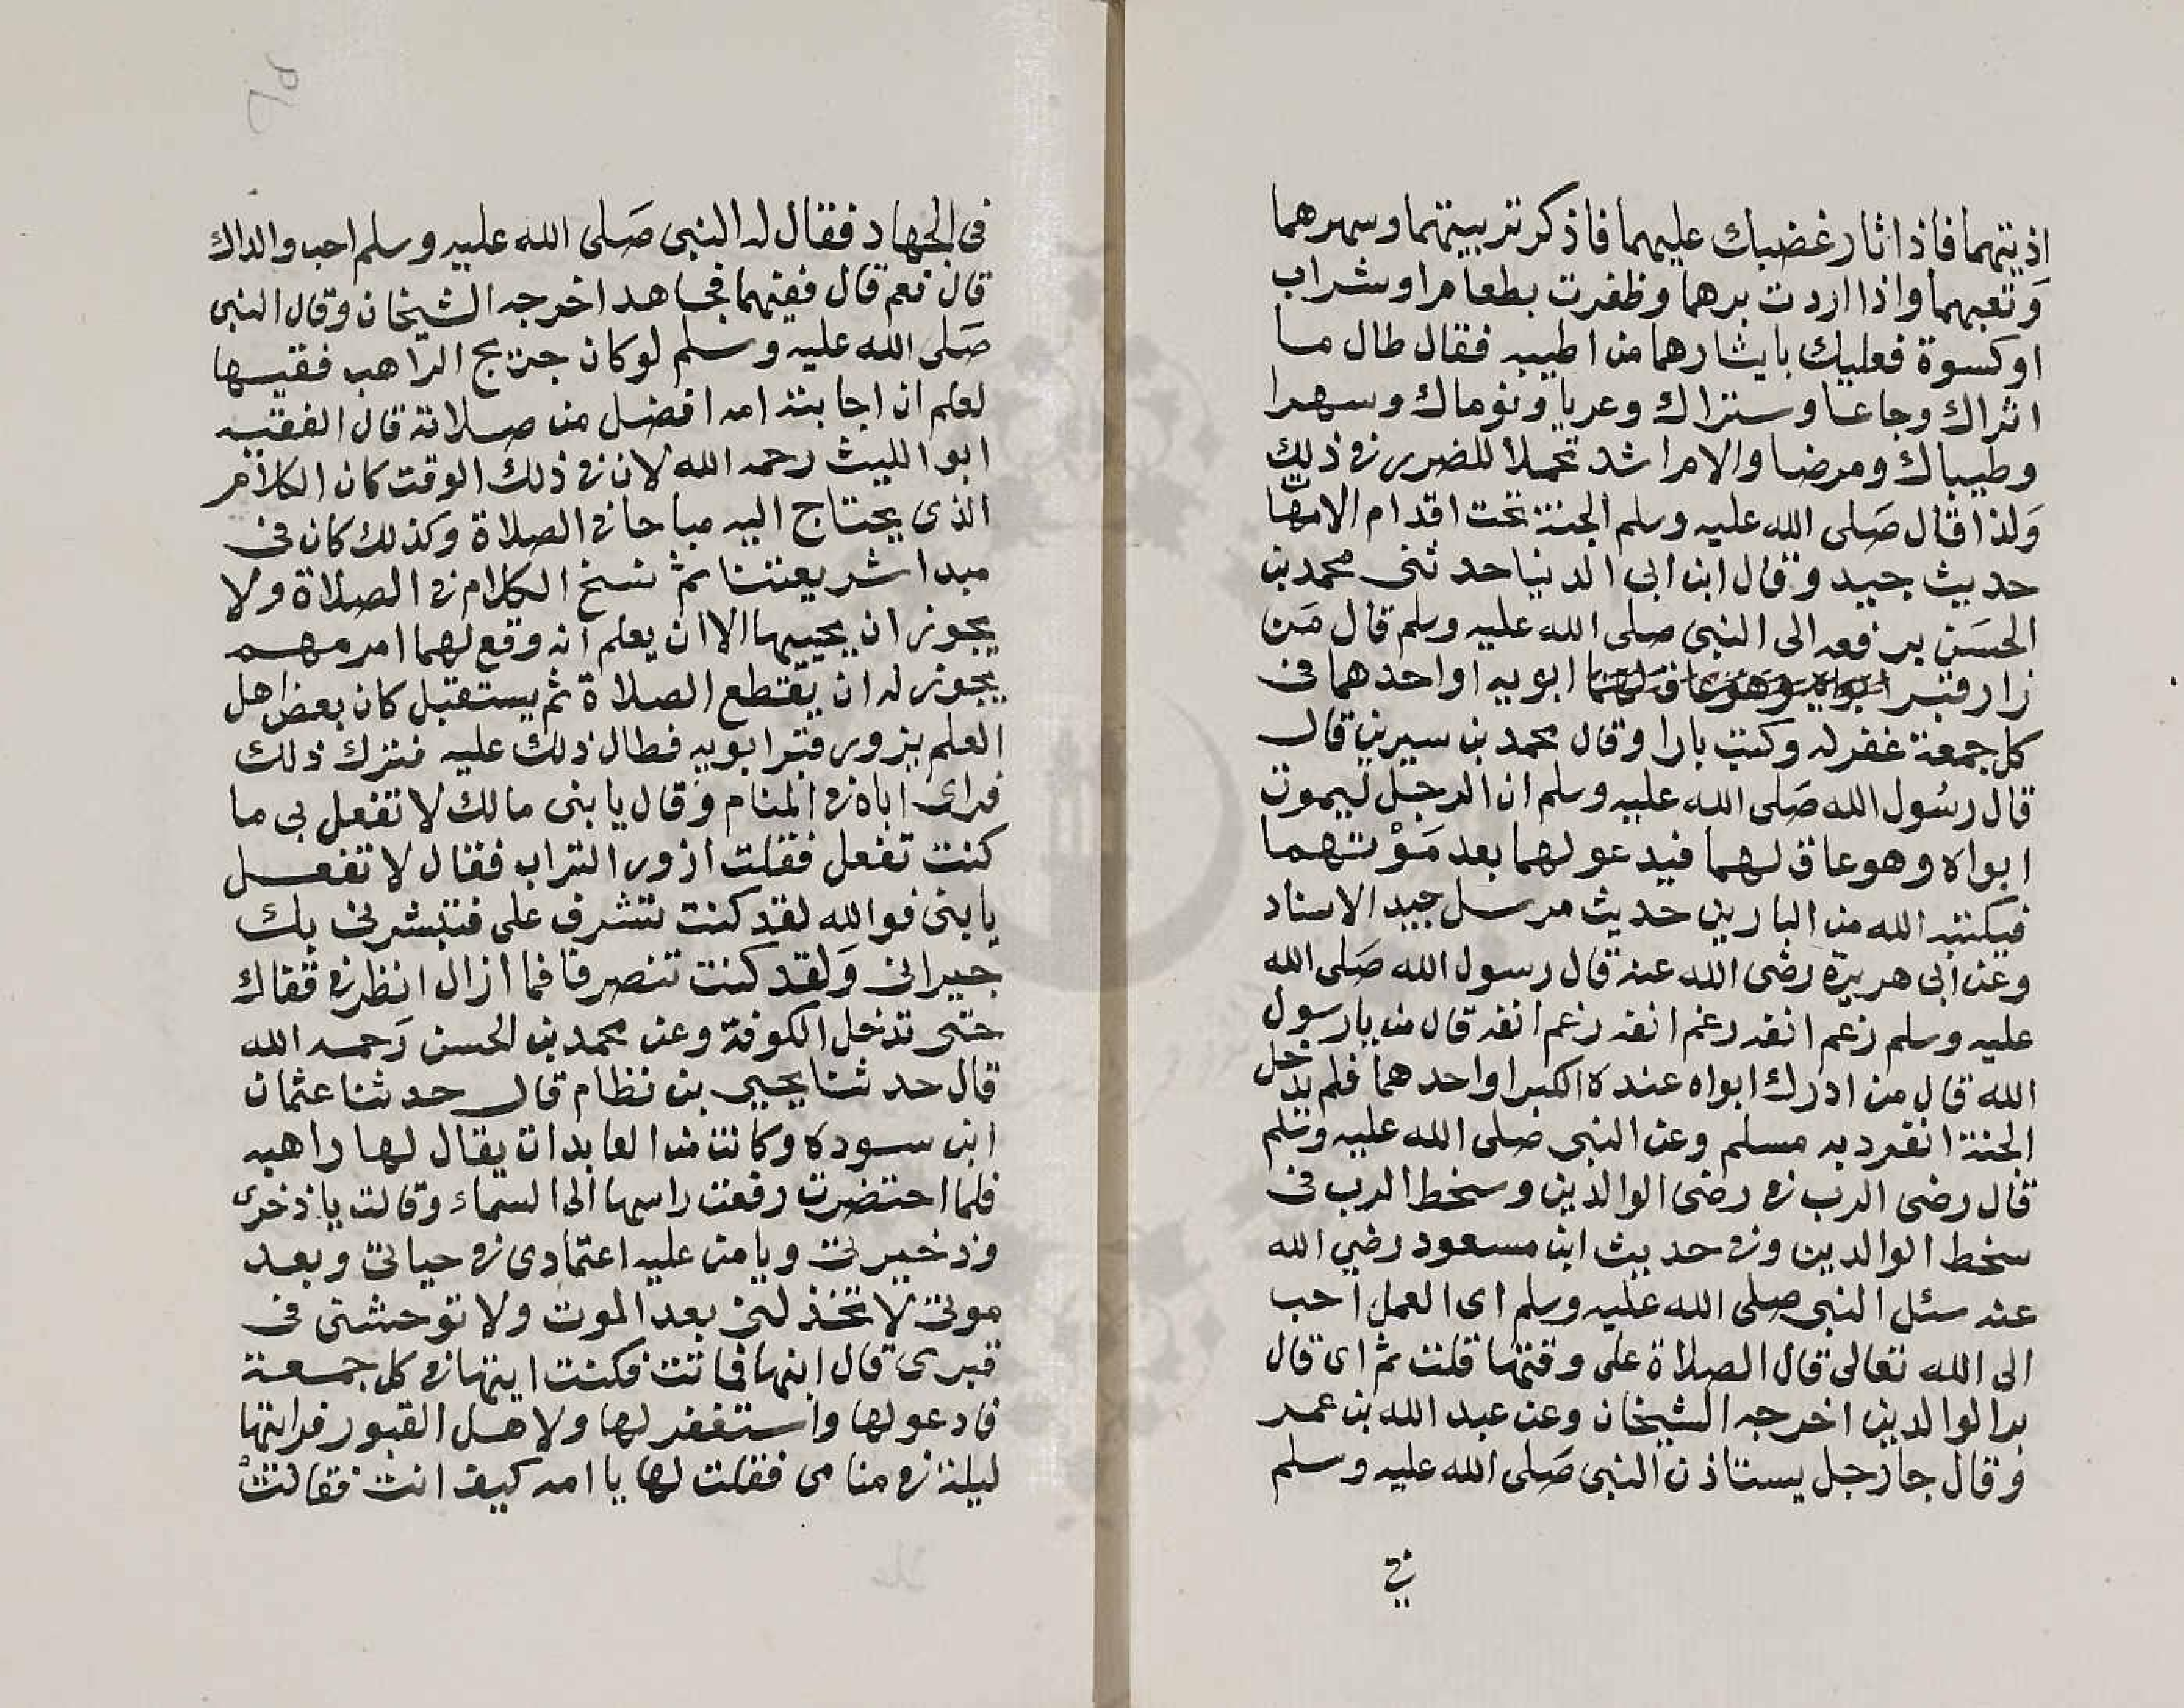 اذيتهما فاذا ثار غضبك عليهما فاذكر تربيتهما وسهرهما
وتعبهما واذا اردت برهما وظفرت بطعام او شراب
او كسوة فعليك بايثارهما من اطيبه فقال طال ما
اثراك وجاعا وستراك وعريا ونوماك وسهرا
وطيباك ومرضا والام اشد تحملا للضرر في ذلك
ولذا قال صلى الله عليه وسلم الجنة تحت اقدام الامهات
حديث جيد وقال ابن ابى الدنيا حدثنى محمد بن
الحسن يرفعه الى النبى صلى الله عليه وسلم قال من
زار قبر ابويه او احدهما فى
كل جمعة غفر له وكتب بارا وقال محمد بن سيرين قال
قال رسول الله صلى الله عليه وسلم ان الرجل ليموت
ابواه وهو عاق لهما فيدعو لهما بعد موتهما
فيكتبه الله من البارين حديث مرسل جيد الاسناد
وعن ابى هريرة رضى الله عنه قال رسول الله صلى الله
عليه وسلم زعم انفه رغم انفه رزعم انفه قال من يا رسول
الله قال من ادرك ابواه عنده الكبر او احدهما فلم يدخل
الجنة انفرد به مسلم وعن النبى صلى الله عليه وسلم
قال رضى الرب في رضى الوالدين وسخط الرب فى
سخط الوالدين وفي حديث ابن مسعود رضى الله
عنه سئل النبى صلى الله عليه وسلم اى العمل احب
الى الله تعالى قال الصلاة على وقتها قلت ثم اى قال
بر الوالدين اخرجه الشيخان وعن عبد الله بن عمر
وقال جا رجل يستاذن النبى صلى الله عليه وسلم
في
فى الجهاد فقال له النبى صلى الله عليه وسلم احب والداك
قال نعم قال ففيهما فجاهد اخرجه الشيخان وقال النبى
صلى الله عليه وسلم لو كان جريج الراهب فقيها
لعلم ان اجابته امه افضل من صلاته قال الفقيه
ابو الليث رحمه الله لان في ذلك الوقت كان الكلام
الذى يحتاج اليه مباحا في الصلاة وكذلك كان فى
مبدا شريعتنا ثم نسخ الكلام في الصلاة ولا
يجوز ان يجيبها الا ان يعلم انه وقع لهما امر مهم
يجوز له ان يقطع الصلاة ثم يستقبل كان بعض اهل
العلم يزور قبر ابويه فطال ذلك عليه فترك ذلك
فراى اباه في المنام وقال يا بنى مالك لا تفعل بى ما
كنت تفعل فقلت ازور التراب فقال لا تفعل
يا بنى فوالله لقد كنت تتشرف على فتبشرنى بك
جيرانى ولقد كنت تنصرف فما ازال انظر في قفاك
حتى تدخل الكوفة وعن محمد بن الحسن رحمه الله
قال حدثنا يحيى بن نظام قال حدثنا عثمان
ابن سوده وكانت من العابدات يقال لها راهبه
فلما احتضرت رفعت راسها الى السماء وقالت يا ذخرى
وذخيرتى ويا من عليه اعتمادى في حياتى وبعد
موتى لا تخذلنى بعد الموت ولا توحشنى فى
قبرى قال ابنها فماتت فكنت ايتها في كل جمعة
فادعو لها واستغفر لها ولاهل القبور فرايتها
ليلة في منامى فقلت لها يا امه كيف انت فقالت